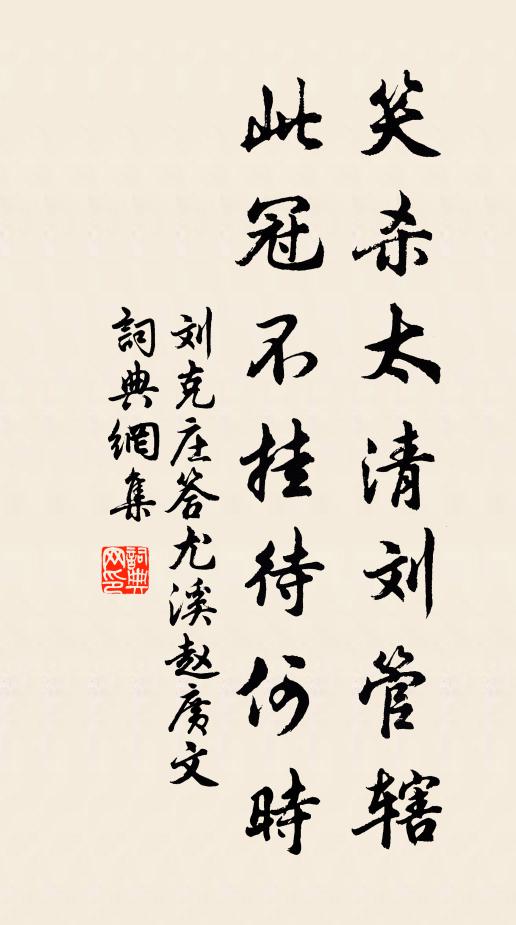 笑杀太清刘管辖
此冠不挂待何時
刘克庄答尤溪赵廣文
詞典網集
詞典网印